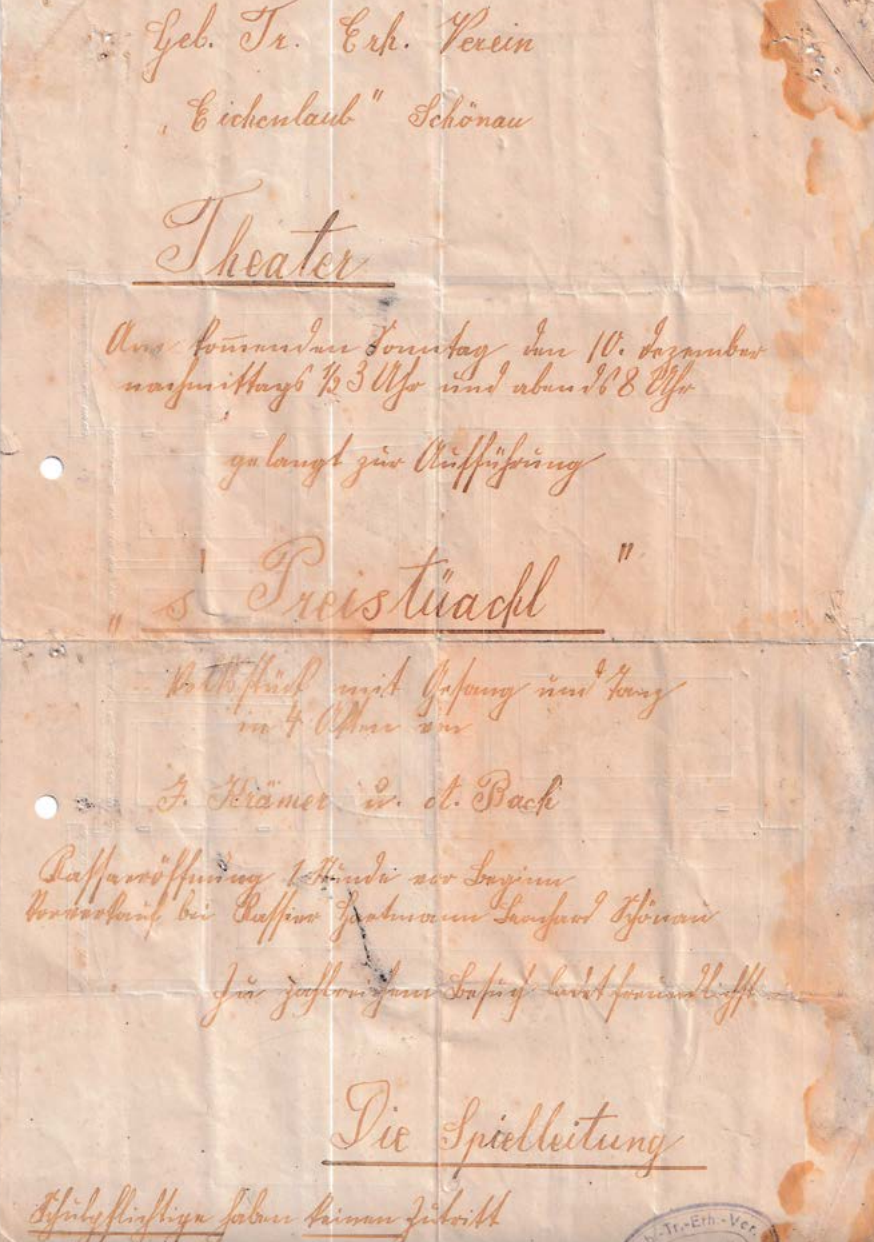 Geb. Tr. Erh. Verein
„Eichenlaub" Schönau
Theater
Am kom̅enden Sonntag den 10. Dezember
nachmittags ½ 3 Uhr und abends 8 Uhr
gelangt zur Aufführung
„s' Preistüachl"
Volksstück mit Gesang und Tanz
in 4 Akten von
J. Krämer u. A. Bach
Kassaeröffnung 1 Stunde vor Beginn
Vorverkauf bei Kassier Hartmann Leonhard Schönau
Zu zahlreichem Besuch ladet freundlichst
Die Spielleitung
Schulpflichtige haben keinen Zutritt
-Tr.-Erh.-Ver.